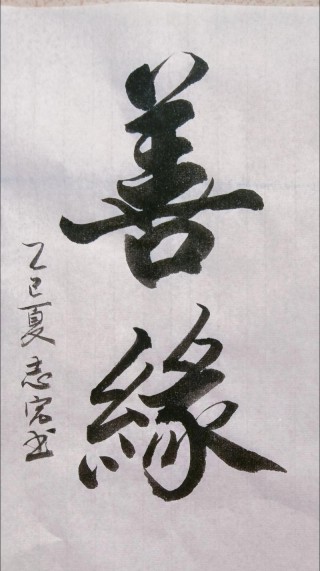 善緣
乙巳夏志宏书